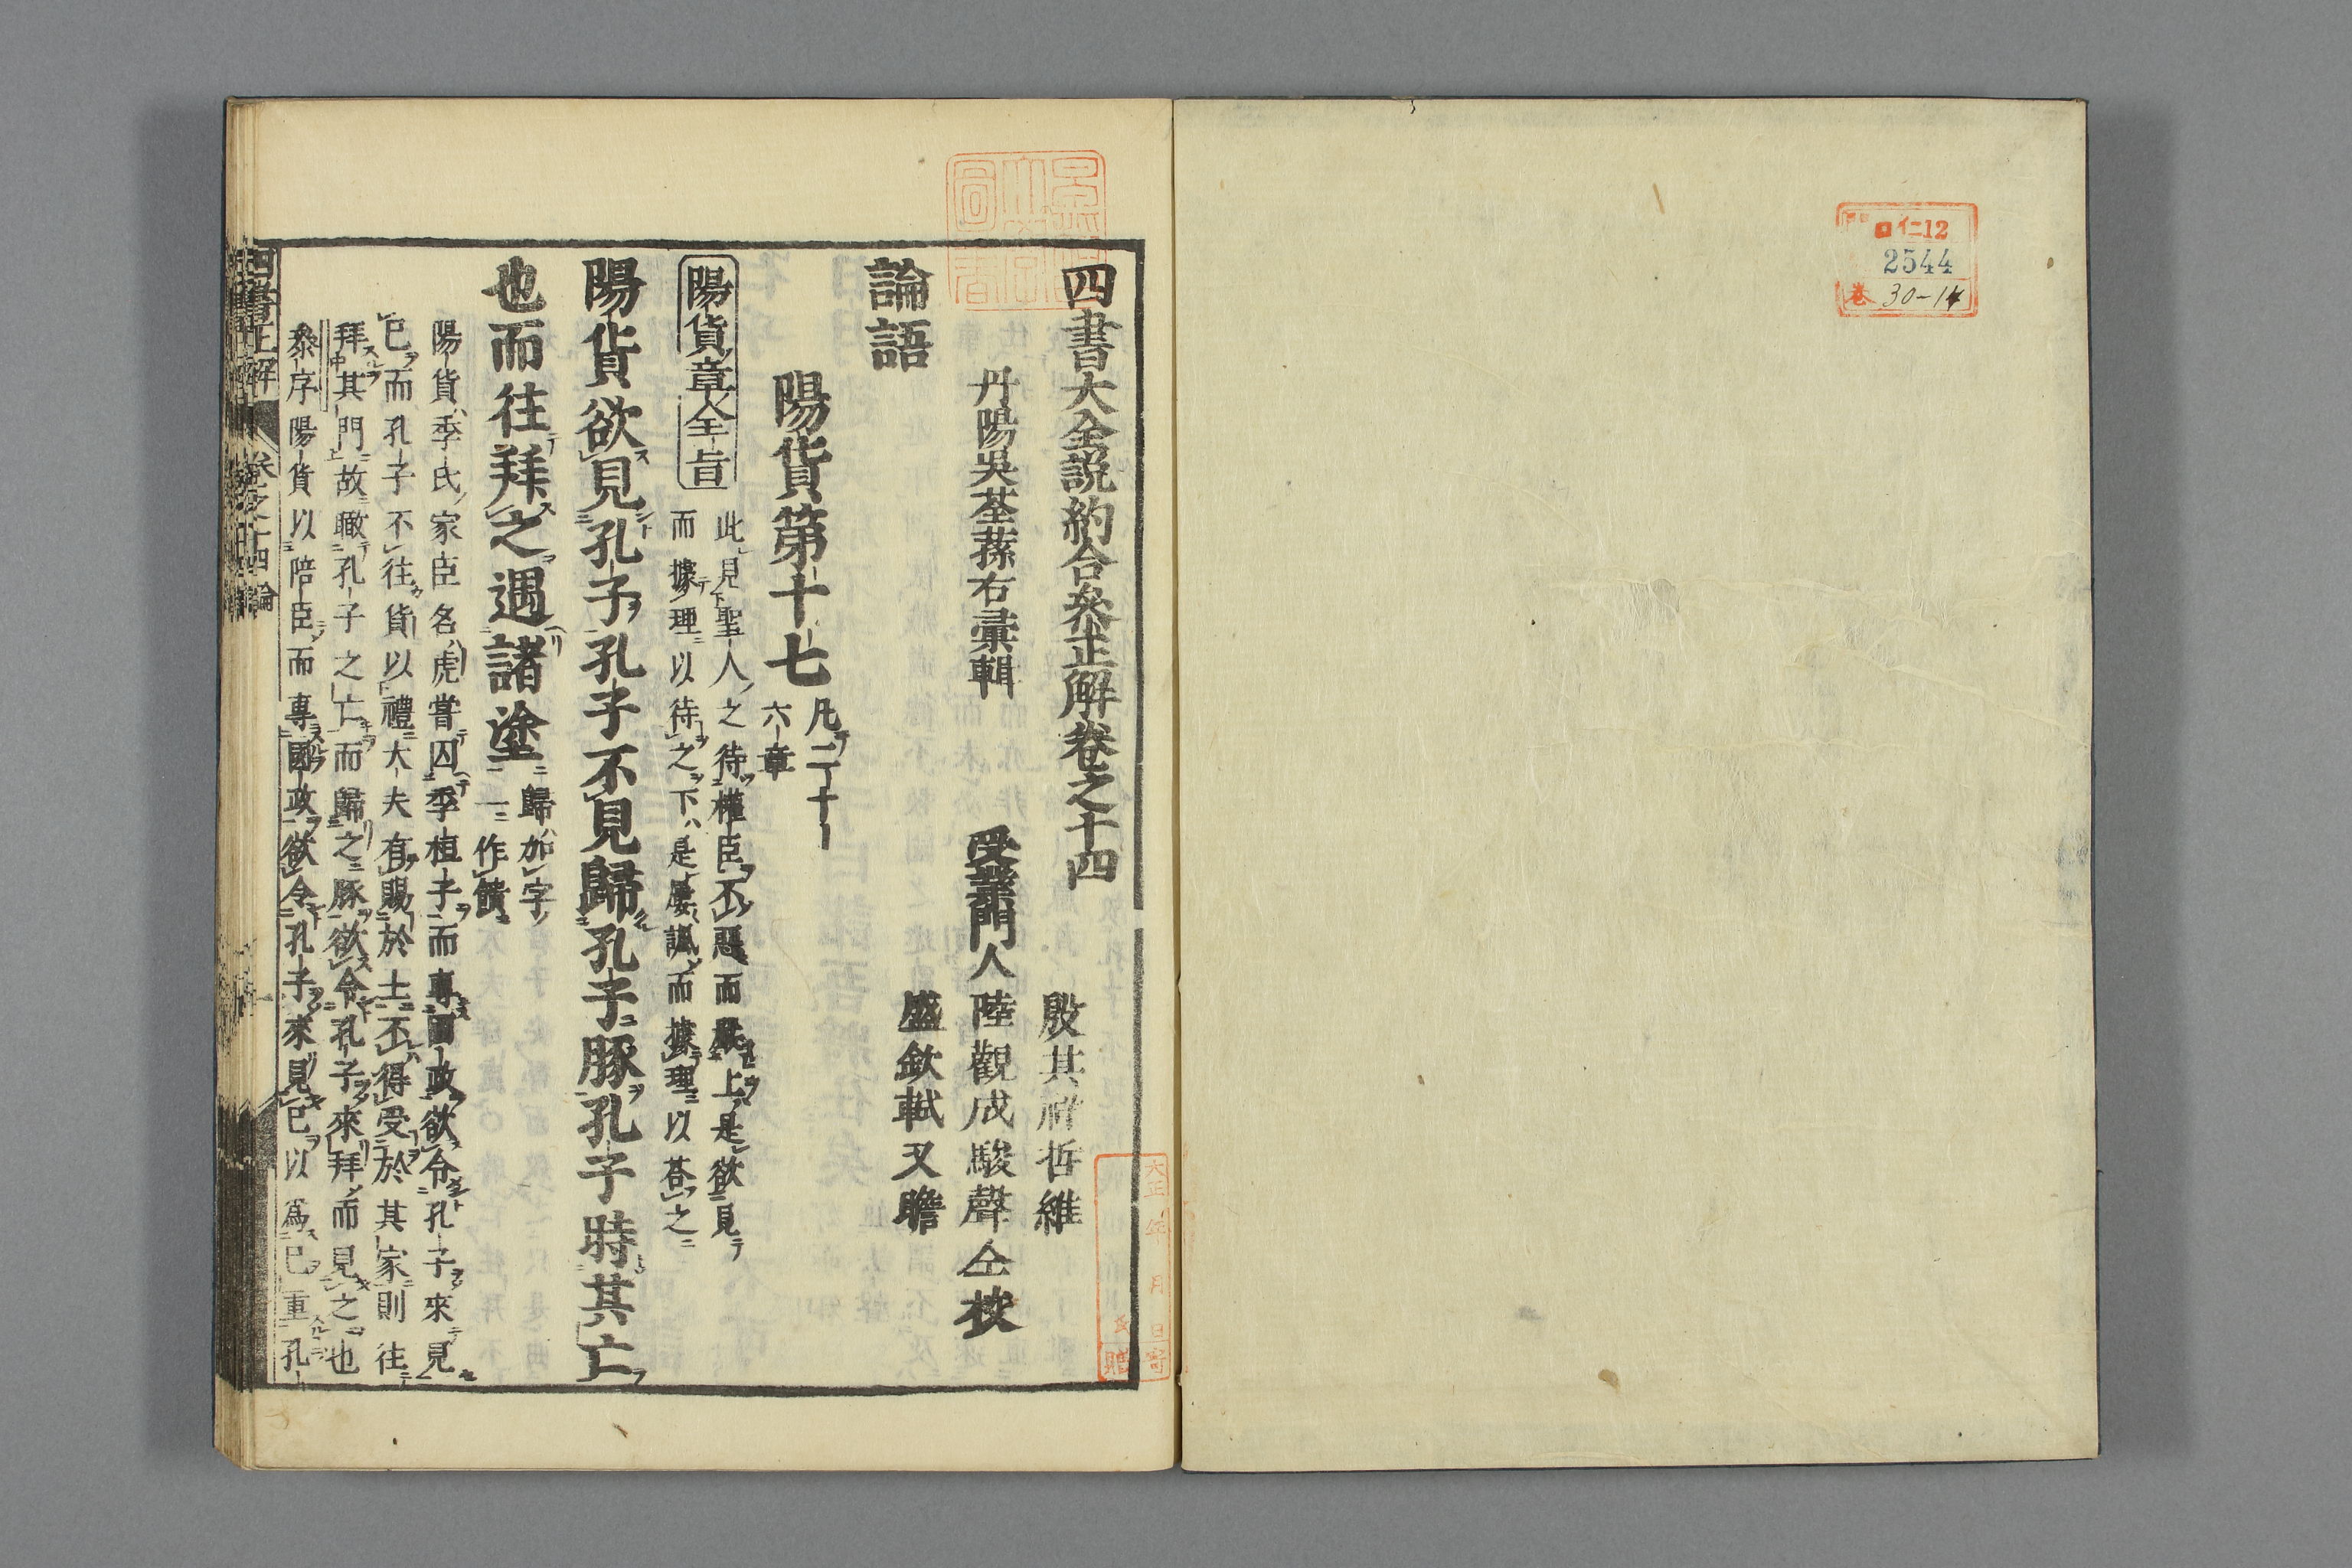 ロ仁12
2544
巻 30-14
四書大全説約合參正解卷之十四
丹陽吳荃蓀右彙輯
受業門人
殷其
哲維
陸觀成駿聲仝挍
盛欽軾又瞻
論語
陽貨第十七
凡二十
六章
陽貨章全旨
此見聖人之待權臣不惡而嚴處上是欲見
而據理以待之下是屢諷而據理以荅之
陽貨欲見孔子孔子不見歸孔子豚孔子時其亡
也而往拜之遇諸塗
歸如字
一作饋
陽貨季氏家臣名虎嘗囚季桓子而專國政欲令孔子來見
己而孔子不往貨以禮大夫有賜於士不得受於其家則往
拜其門故瞰孔子之亡而歸之豚欲令孔子來拜而見之也
叅序陽貨以陪臣而專國政欲令孔子來見己以爲己重孔
四書正解
卷之十四
論